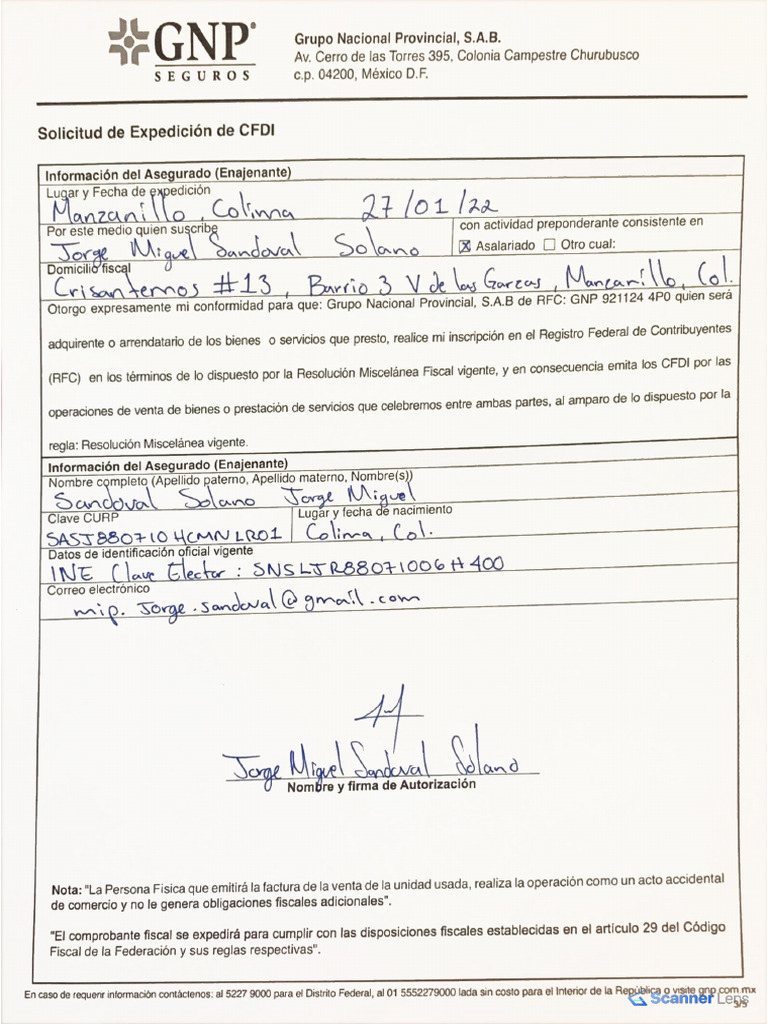 GNP
SEGUROS
Grupo Nacional Provincial, S.A.B.
Av. Cerro de las Torres 395, Colonia Campestre Churubusco
c.p. 04200, México D.F.
Solicitud de Expedición de CFDI
Información del Asegurado (Enajenante)
Lugar y Fecha de expedición
Manzanillo, Colima 27/01/22
Por este medio quien suscribe
con actividad preponderante consistente en
Jorge Miguel Sandoval Solano
Asalariado Otro cual:
Domicilio fiscal
Crisantemos #13, Barrio 3 V de las Garzas, Manzanillo, Col.
Otorgo expresamente mi conformidad para que: Grupo Nacional Provincial, S.A.B de RFC: GNP 921124 4P0 quien será
adquirente o arrendatario de los bienes o servicios que presto, realice mi inscripción en el Registro Federal de Contribuyentes
(RFC) en los términos de lo dispuesto por la Resolución Miscelánea Fiscal vigente, y en consecuencia emita los CFDI por las
operaciones de venta de bienes o prestación de servicios que celebremos entre ambas partes, al amparo de lo dispuesto por la
regla: Resolución Miscelánea vigente.
Información del Asegurado (Enajenante)
Nombre completo (Apellido paterno, Apellido materno, Nombre(s))
Sandoval Solano Jorge Miguel
Clave CURP
Lugar y fecha de nacimiento
SASJ880710HCMNLR01
Colima, Col.
Datos de identificación oficial vigente
INE Clave Elector: SNSLJR88071006H400
Correo electrónico
mip.jorge.sandoval@gmail.com
Jorge Miguel Sandoval Solano
Nombre y firma de Autorización
Nota: "La Persona Física que emitirá la factura de la venta de la unidad usada, realiza la operación como un acto accidental
de comercio y no le genera obligaciones fiscales adicionales".
"El comprobante fiscal se expedirá para cumplir con las disposiciones fiscales establecidas en el artículo 29 del Código
Fiscal de la Federación y sus reglas respectivas".
En caso de requerir información contáctenos: al 5227 9000 para el Distrito Federal, al 01 5552279000 lada sin costo para el Interior de la República o visite gnp.com.mx
Scanner Lens
3/5